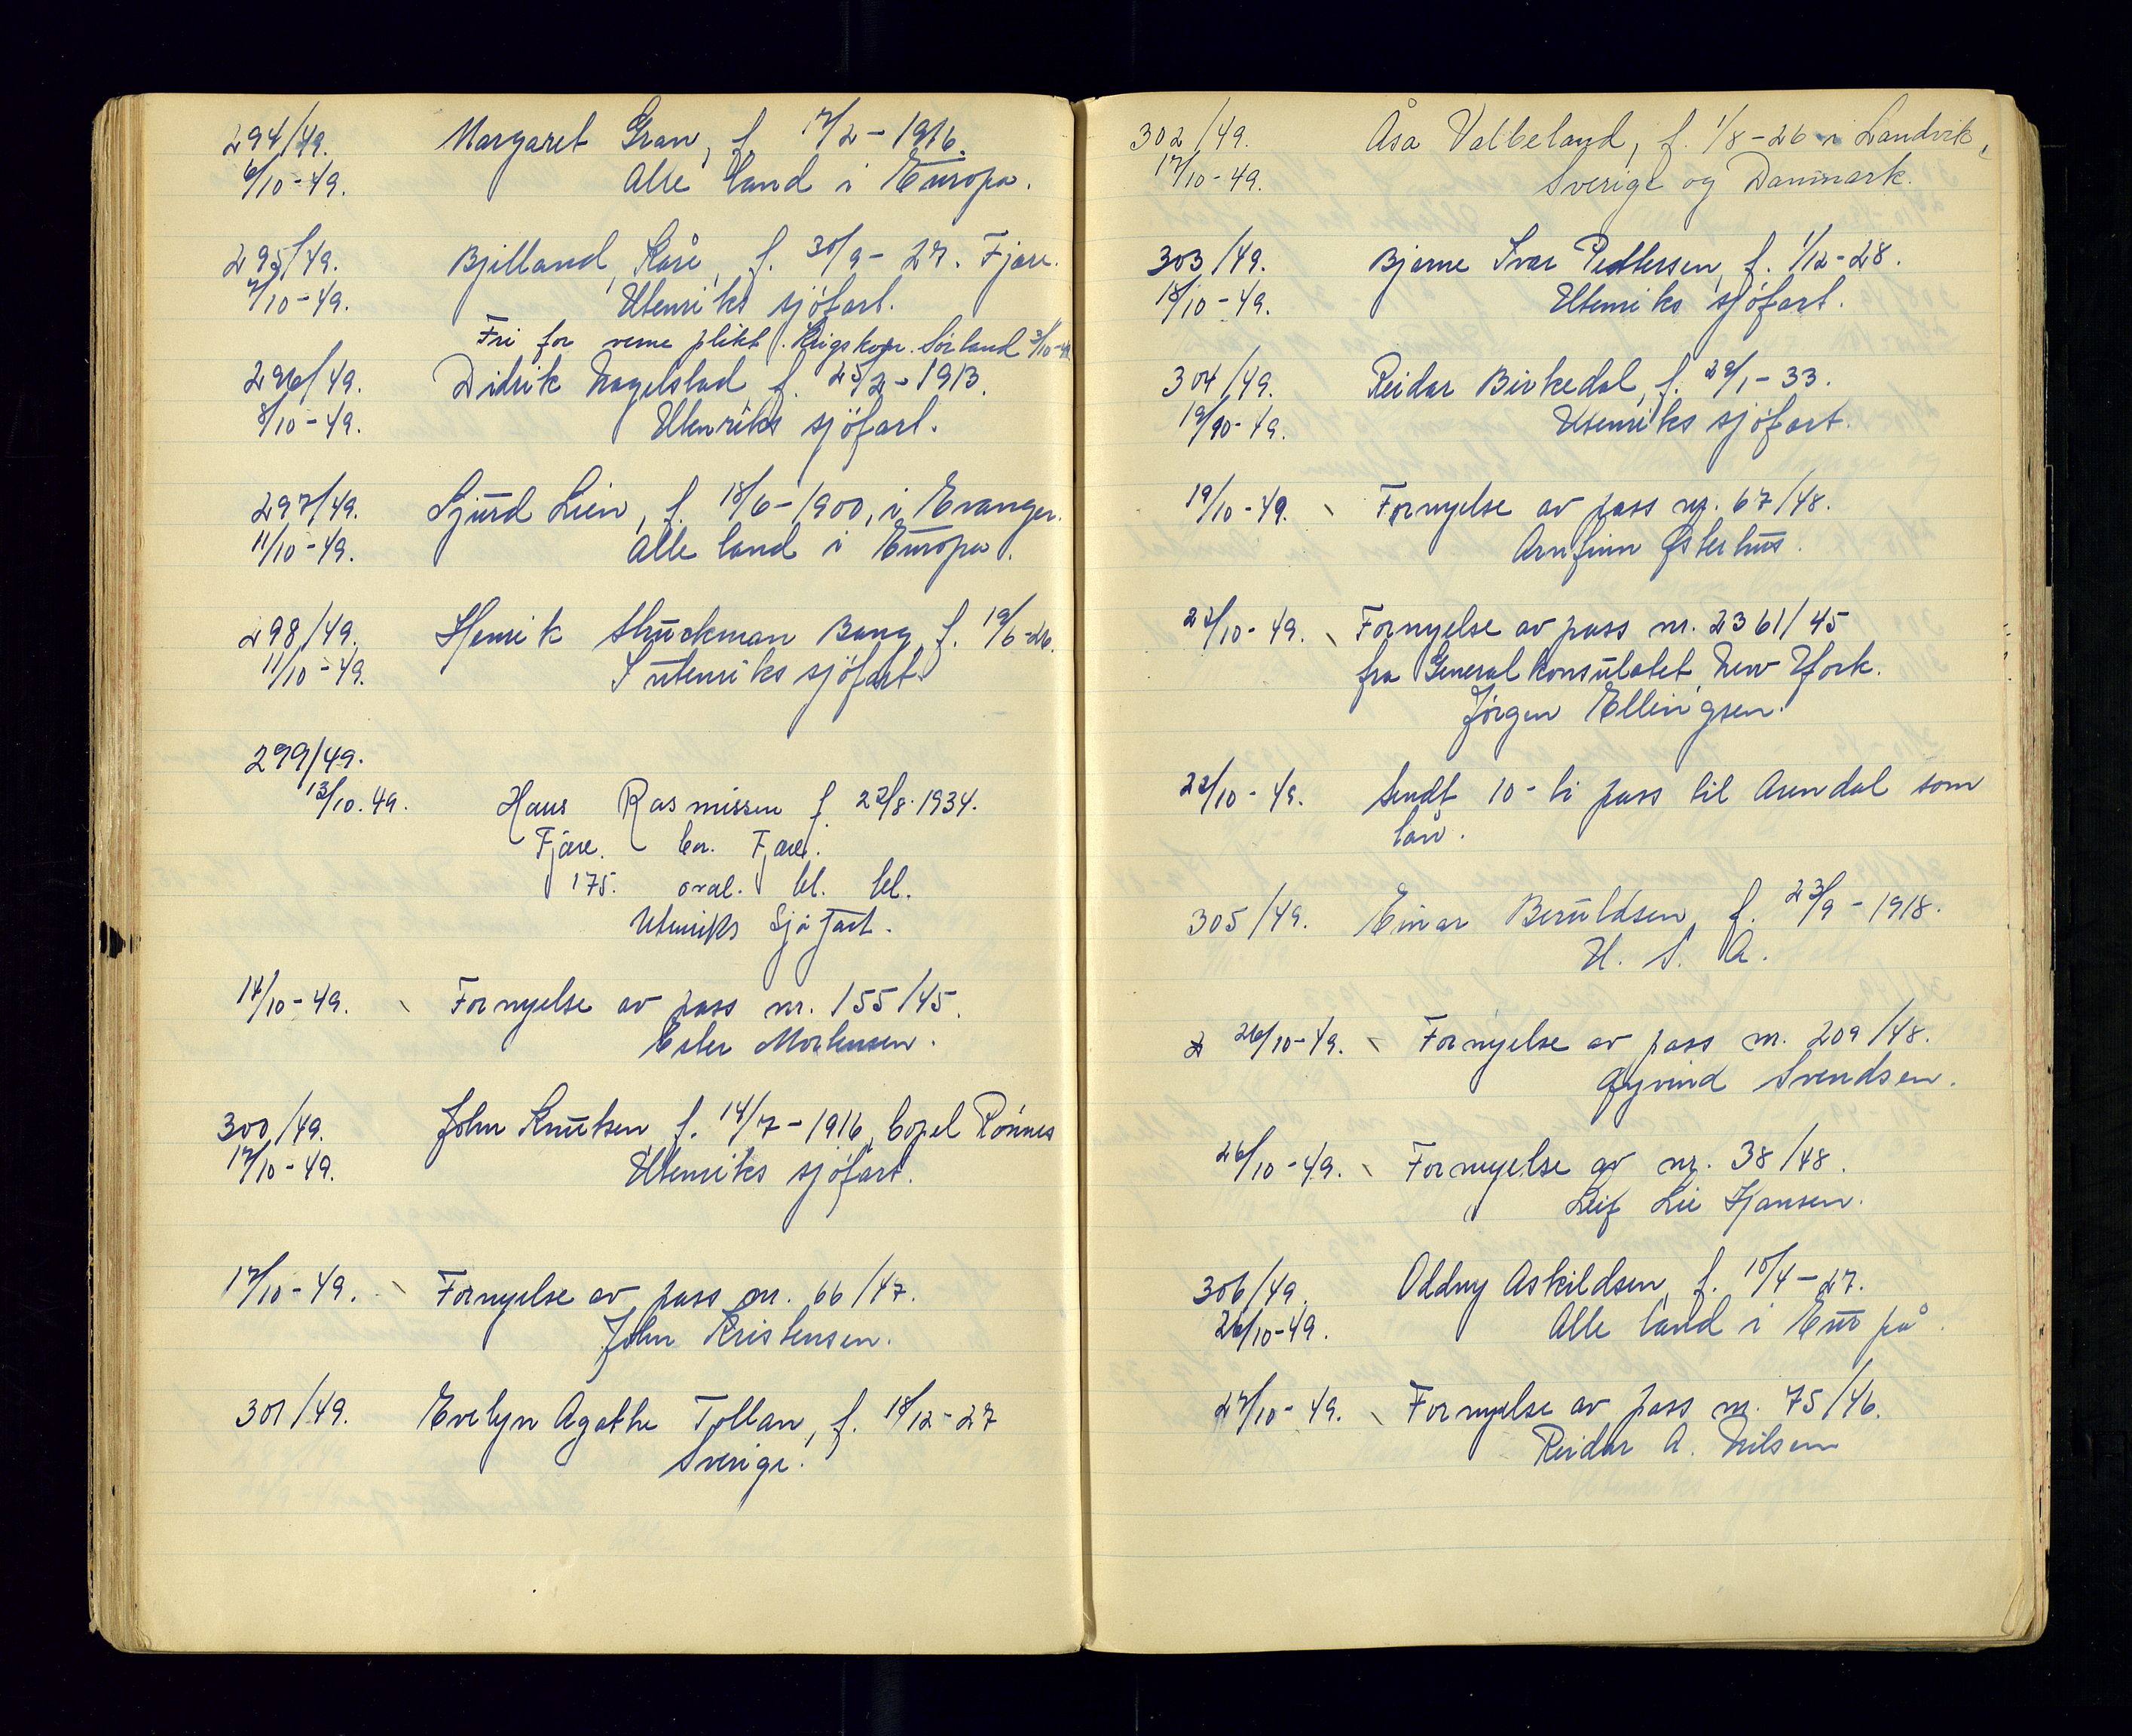 294/49. Margaret Gran, f. 17/2 - 1916.
6/10 - 49. Alle land i Europa.
295/49. Bjelland, Kåre, f. 30/9 - 27. Fjære.
7/10 - 49. Utenriks sjöfart.
Fri for verne plikt. Krigskom. Sörland 3/10-49
296/49. Didrik Nagelstad, f. 25/2 - 1913.
8/10 - 49. Utenriks sjöfart.
297/49. Sjurd Lien, f. 18/6 - 1900, i Evanger.
11/10 - 49. Alle land i Europa.
298/49. Henrik Struckman Bang f. 19/6-26.
11/10 - 49. I utenriks sjöfart.
299/49.
13/10. 49. Hans Rasmissen f. 22/8. 1934.
Fjære. bor. Fjære.
175. oval. bl. bl.
Utenriks Sjöfart.
14/10 - 49. Fornyelse av pass nr. 155/45.
Ester Mortensen.
300/49. John Knutsen, f. 14/7 - 1916, bopel Rönnes
17/10 - 49. Utenriks sjöfart.
17/10 - 49. Fornyelse av pass nr. 66/47.
John Kristensen.
301/49. Evelyn Agathe Tollan, f. 18/12 - 27
Sverige.
302/49. Åsa Valbeland, f. 1/8 - 26 i Landvik,
17/10 - 49. Sverige og Danmark.
303/49. Bjarne Ivar Pedtersen, f. 1/12 - 28.
18/10 - 49. Utenriks sjöfart.
304/49. Reidar Birkedal, f. 29/1 - 33.
19/10 - 49. Utenriks sjöfart.
19/10 - 49. Fornyelse av pass nr. 67/48.
Arnfinn Østerhus.
22/10 - 49. Fornyelse av pass nr. 2361/45
fra Generalkonsulatet, New York.
Jörgen Ellingsen.
22/10 - 49. Sendt 10 - ti pass til Arendal som
lån.
305/49. Einar Beruldsen, f. 23/9 - 1918.
U. S. A.
26/10 - 49. Fornyelse av pass nr. 209/48.
Øyvind Svendsen.
26/10 - 49. Fornyelse av nr. 38/48.
Leif Lie Hansen.
306/49. Oddny Askildsen, f. 10/4 - 27.
26/10 - 49. Alle land i Europå.
27/10 - 49. Fornyelse av pass nr. 75/46.
Reidar A. Nilsen